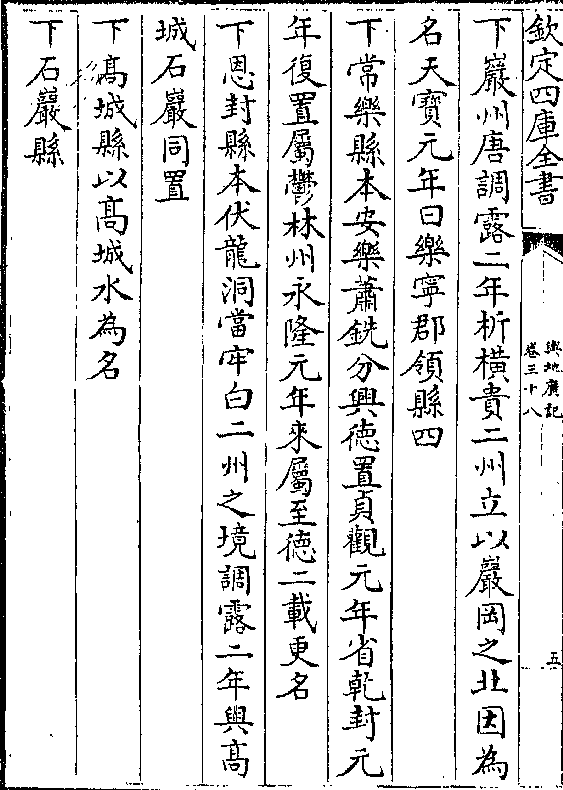 欽定四庫全書
輿地廣記
卷三十八
五
下巖州唐調露二年析橫貴二州立以巖岡之北因為
名天寶元年曰樂寧郡領縣四
下常樂縣本安樂蕭銑分興德置貞觀元年省乾封元
年復置屬鬱林州永隆元年來屬至德二載更名
下恩封縣本伏龍洞當牢白二州之境調露二年與髙
城石巖同置
下髙城縣以髙城水為名
下石巖縣